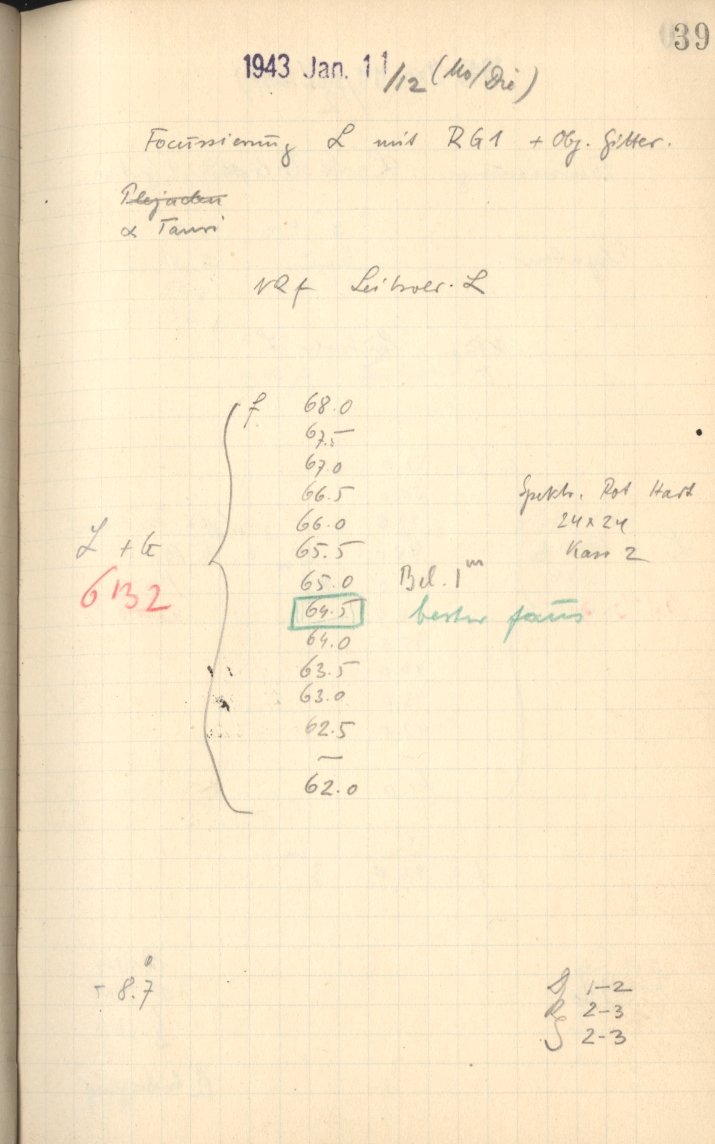 39
1943 Jan. 11/12 (Mo/Die)
Focussierung L mit RG1 + Obj. Gitter.
Plejaden
α Tauri
f 68.0
67.5
67.0
66.5
66.0
65.5
65.0 Bel. 1ᵐ
64.5 bester
64.0
63.5
63.0
62.5
—
62.0
L + G
6132
Spektr. Rot Hart
24×24
Kass 2
- 8.7°
D 1-2
R 2-3
S 2-3